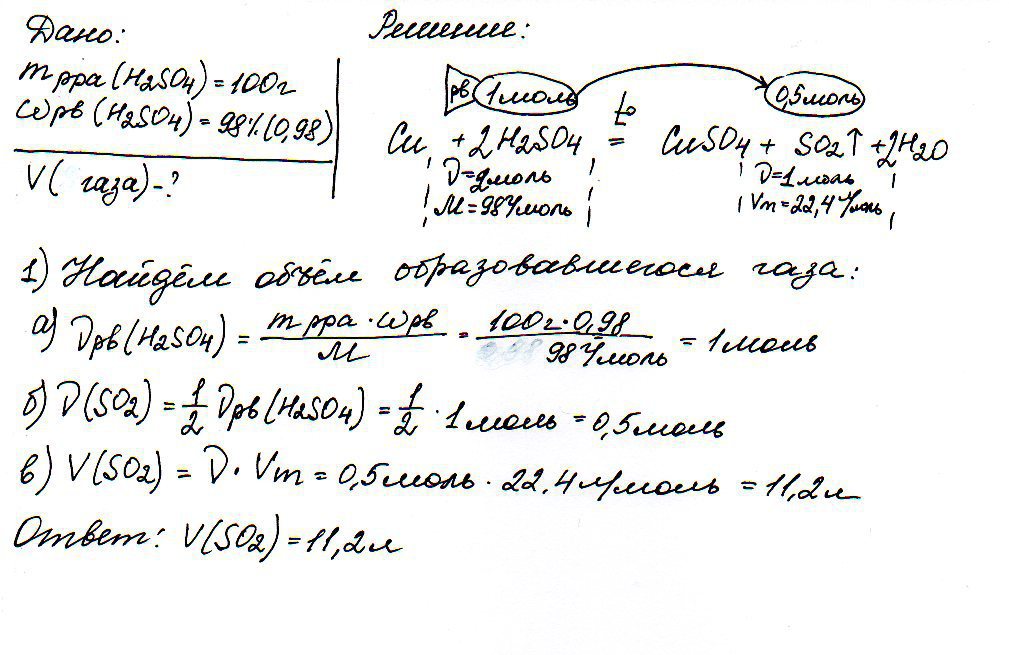 Дано:
Решение:
m рра (H2SO4) = 100г
ω рв (H2SO4) = 98% (0,98)
V( газа) - ?
рв 1 моль
0,5 моль
Cu + 2H2SO4 t° = CuSO4 + SO2↑ + 2H2O
ν = 2 моль
ν = 1 моль
M = 98 г/моль
Vm = 22,4 л/моль
1) Найдём объём образовавшегося газа:
а) νрв (H2SO4) = m рра · ω рв / M = 100г · 0,98 / 98 г/моль = 1 моль
б) ν(SO2) = 1/2 νрв (H2SO4) = 1/2 · 1 моль = 0,5 моль
в) V(SO2) = ν · Vm = 0,5 моль · 22,4 л/моль = 11,2 л
Ответ: V(SO2) = 11,2 л